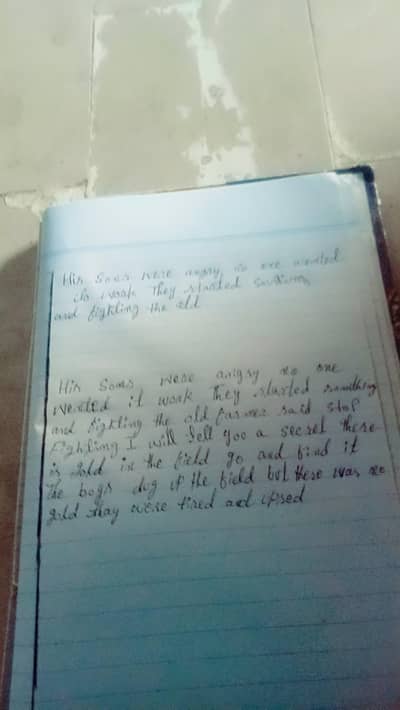 His Sons were angry no one wanted
do work They started
and fighting the old
His Sons were angry no one
wented it work They started somthing
and fightling the old farmer said stop
Fightling I will tell you a secret there
is gold in the field go and find it
The boys dug up the field but there was no
gold thay were tired and upsed